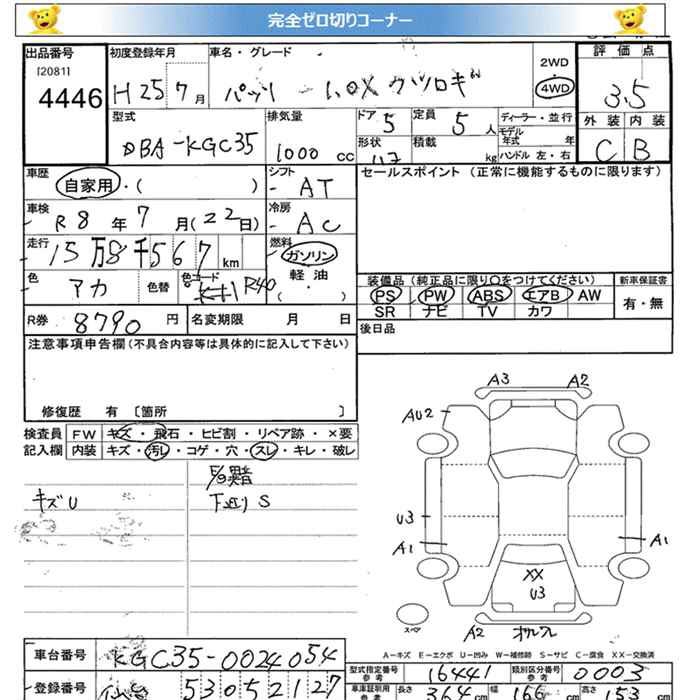 完全ゼロ切りコーナー
出品番号
[20811]
4446
初度登録年月
H 25 7 月
車名・グレード
パッソ 1.0X クツロギ
2WD
4WD
評価点
3.5
外装 内装
C B
型式
DBA-KGC35
排気量
1000 cc
ドア
5
定員
5 人
形状
積載
kg
ディーラー・並行
モデル年式 年
ハンドル 左・右
車歴
自家用・( )
シフト
- AT
セールスポイント (正常に機能するものに限ります)
車検
R 8 年 7 月(22日)
冷房
- AC
走行
15万8千567 km
燃料
ガソリン
軽油
( ・ )
色
アカ
色替
色コード
R40
装備品(純正品に限り○をつけてください)
新車保証書
PS PW ABS エアB AW
SR ナビ TV カワ
有・無
R券
8790 円
名変期限 月 日
後日品
注意事項申告欄(不具合内容等は具体的に記入して下さい)
修復歴 有 〔箇所 〕
検査員記入欄
FW キズ・飛石・ヒビ割・リペア跡・×要
内装 キズ・汚し・コゲ・穴・スレ・キレ・破レ
キズU
下廻りS
A3 A2
AU2
U3
A1
A1
XX
U3
スペア
A2
A-キズ E-エクボ U-凹み W-補修跡 S-サビ C-腐食 XX-交換済
車台番号
KGC35-0024054
型式指定番号 参考
16441
類別区分番号 参考
0003
登録番号
仙台 530 5 2127
車車証明用 参考
長さ 364 cm
幅 166 cm
高さ 153 cm